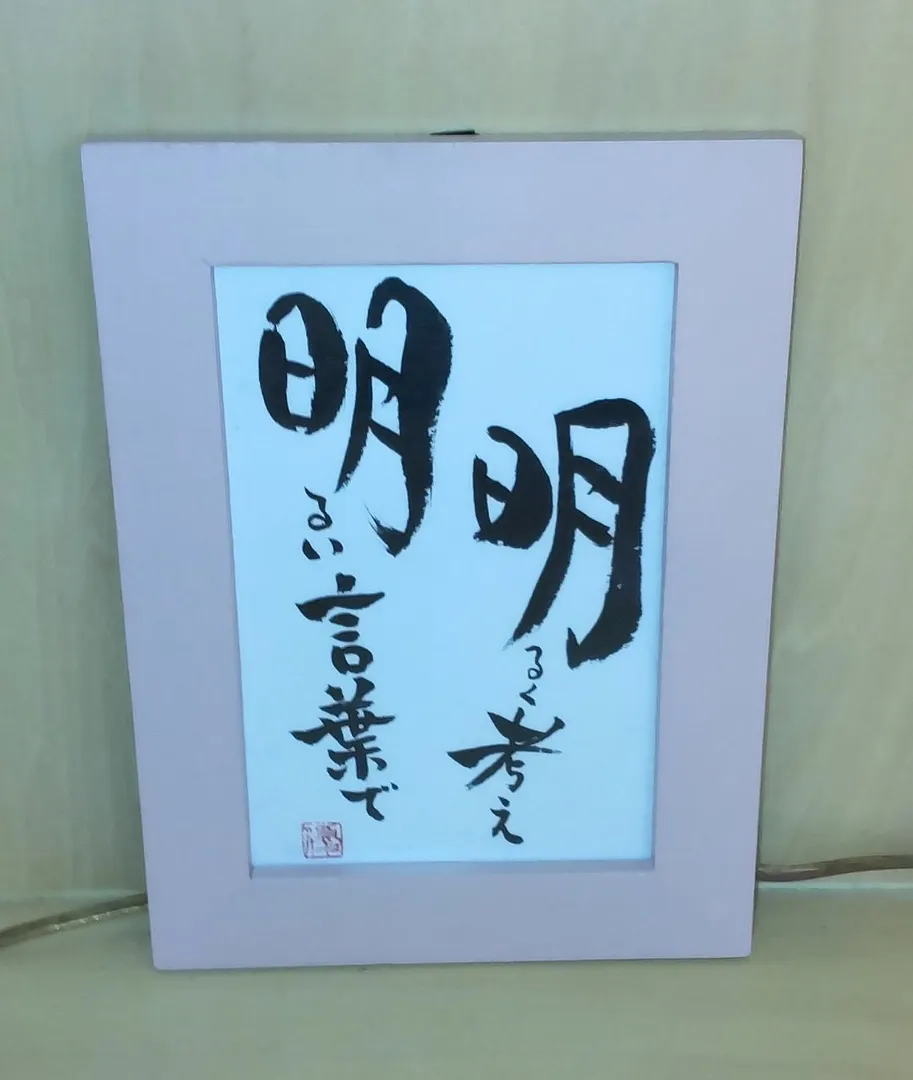 明るく考え
明るい言葉で